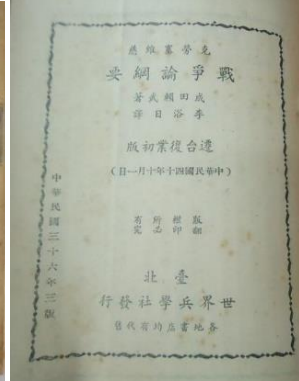 克勞塞維慈
戰爭論綱要
成田賴武著
李浴日譯
遷台復業初版
(中華民國四十年十月一日)
版權所有
翻印必究
臺北
世界兵學社發行
各地書店均有代售
中華民國三十六年三版